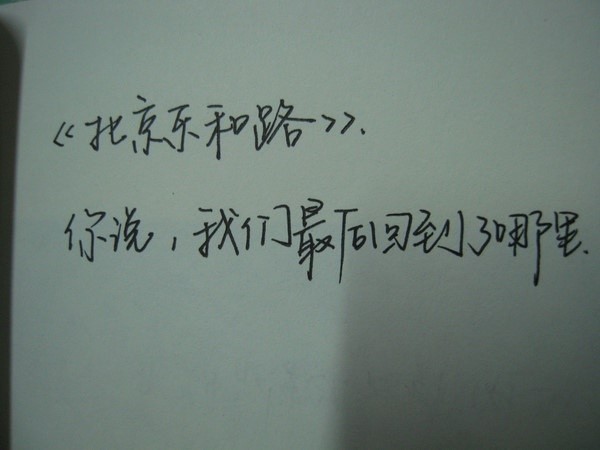 《北京东和路》.
你说，我们最后回到了哪里.